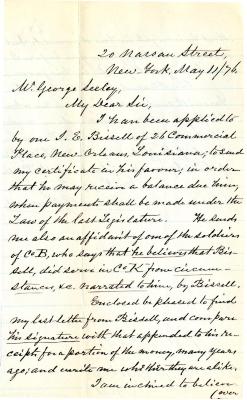 20 Nassau Street,
New York, May 11/76.
Mr. George Seeley,
My Dear Sir,
I have been applied to
by one I. E. Bissell of 26 Commercial
Place, New Orleans, Louisiana; to send
my certificate in his favor; in order
that he may receive a balance due him,
when payment shall be made under the
Law of the last Legislature. He sends
me also an affidavit of one of the soldiers
of Co. B, who says that he believes that Bis-
sell, did serve in Co. K from circum-
stances, &c. narrated to him, by Bissell.
Enclosed be pleased to find
my last letter from Bissell, and compare
his signature with that appended to his re-
ceipt, for a portion of the money, many years
ago; and write me whether they are alike.
I am inclined to believe
(over